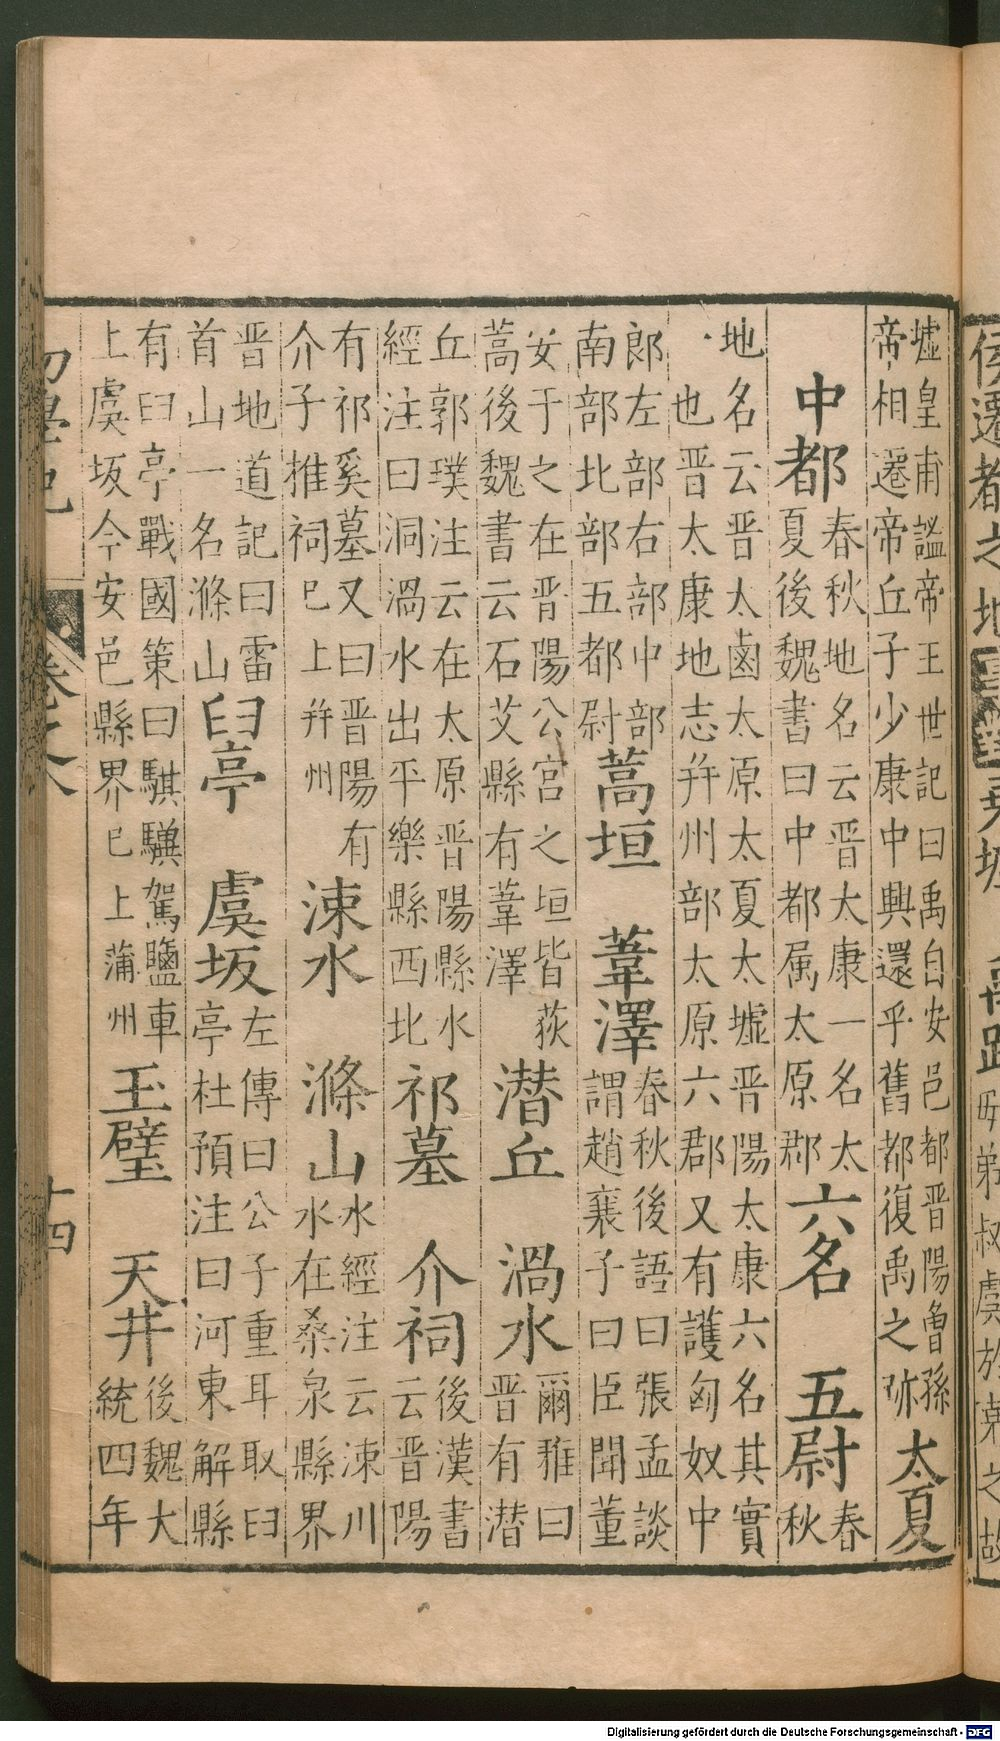 墟皇甫謐帝王世記曰禹自安邑都晉陽魯孫
帝相遷帝丘子少康中興還乎舊都復禹之迹
太夏
中都
春秋地名云晉大康一名太
夏後魏書曰中都属太原郡
六名
五尉
春
秋
地名云晉太鹵太原太夏太墟晉陽太康六名其實
也晉太康地志幷州部太原六郡又有護匈奴中
郎左部右部中部
南部北部五都尉
蒿垣
葦澤
春秋後語曰張孟談
謂趙襄子曰臣聞董
安于之在晋陽公宮之垣皆荻
蒿後魏書云石艾縣有葦澤
潜丘
渦水
爾雅曰
晉有潜
丘郭璞注云在太原晋陽縣水
經注曰洞渦水出平樂縣西北
祁墓
介祠
後漢書
云晉陽
有祁奚墓又曰晋陽有
介子推祠已上幷州
涑水
滌山
水經注云涑川
水在桑泉縣界
晋地道記曰雷
首山一名滌山
臼亭
虞坂
左傳曰公子重耳取臼
亭杜預注曰河東解縣
有曰亭戰國策曰騏驥駕鹽車
上虞坂今安邑縣界已上蒲州
玉璧
天井
後魏大
統四年
卷之八
十四
Digitalisierung gefördert durch die Deutsche Forschungsgemeinschaft - DFG